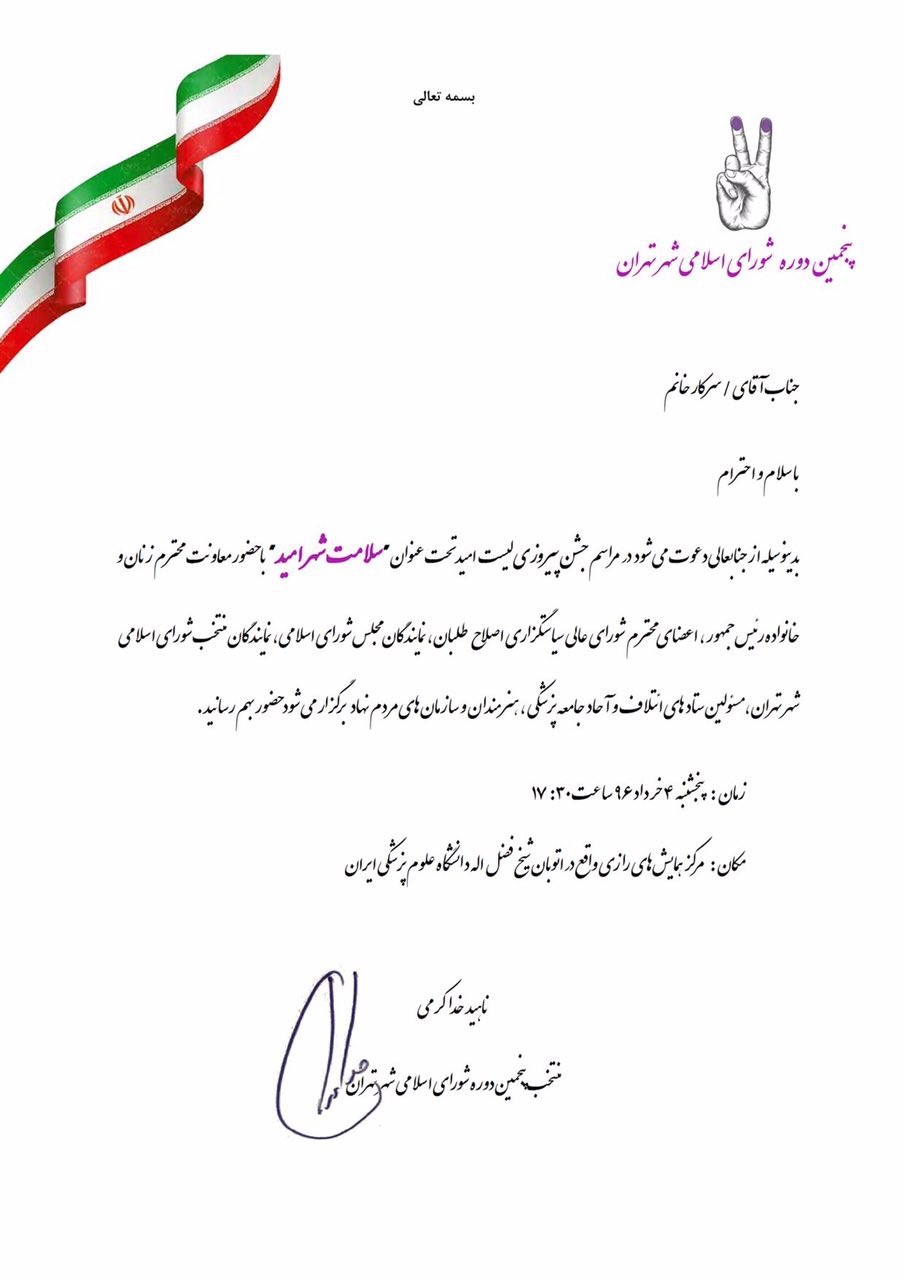 بسمه تعالی
پنجمین دوره شورای اسلامی شهر تهران
جناب آقای / سرکار خانم
با سلام و احترام
بدینوسیله از جنابعالی دعوت می شود در مراسم جشن پیروزی لیست امید تحت عنوان "سلامت شهر امید" با حضور معاونت محترم زنان و
خانواده رئیس جمهور ، اعضای محترم شورای عالی سیاستگزاری اصلاح طلبان، نمایندگان مجلس شورای اسلامی، نمایندگان منتخب شورای اسلامی
شهر تهران، مسئولین ستادهای ائتلاف و آحاد جامعه پزشکی ، هنرمندان و سازمان های مردم نهاد برگزار می شود حضور بهم رسانید.
زمان : پنجشنبه ۴ خرداد ۹۶ ساعت ۱۷:۳۰
مکان : مرکز همایش های رازی واقع در اتوبان شیخ فضل اله دانشگاه علوم پزشکی ایران
ناهید خداکرمی
منتخب پنجمین دوره شورای اسلامی شهر تهران